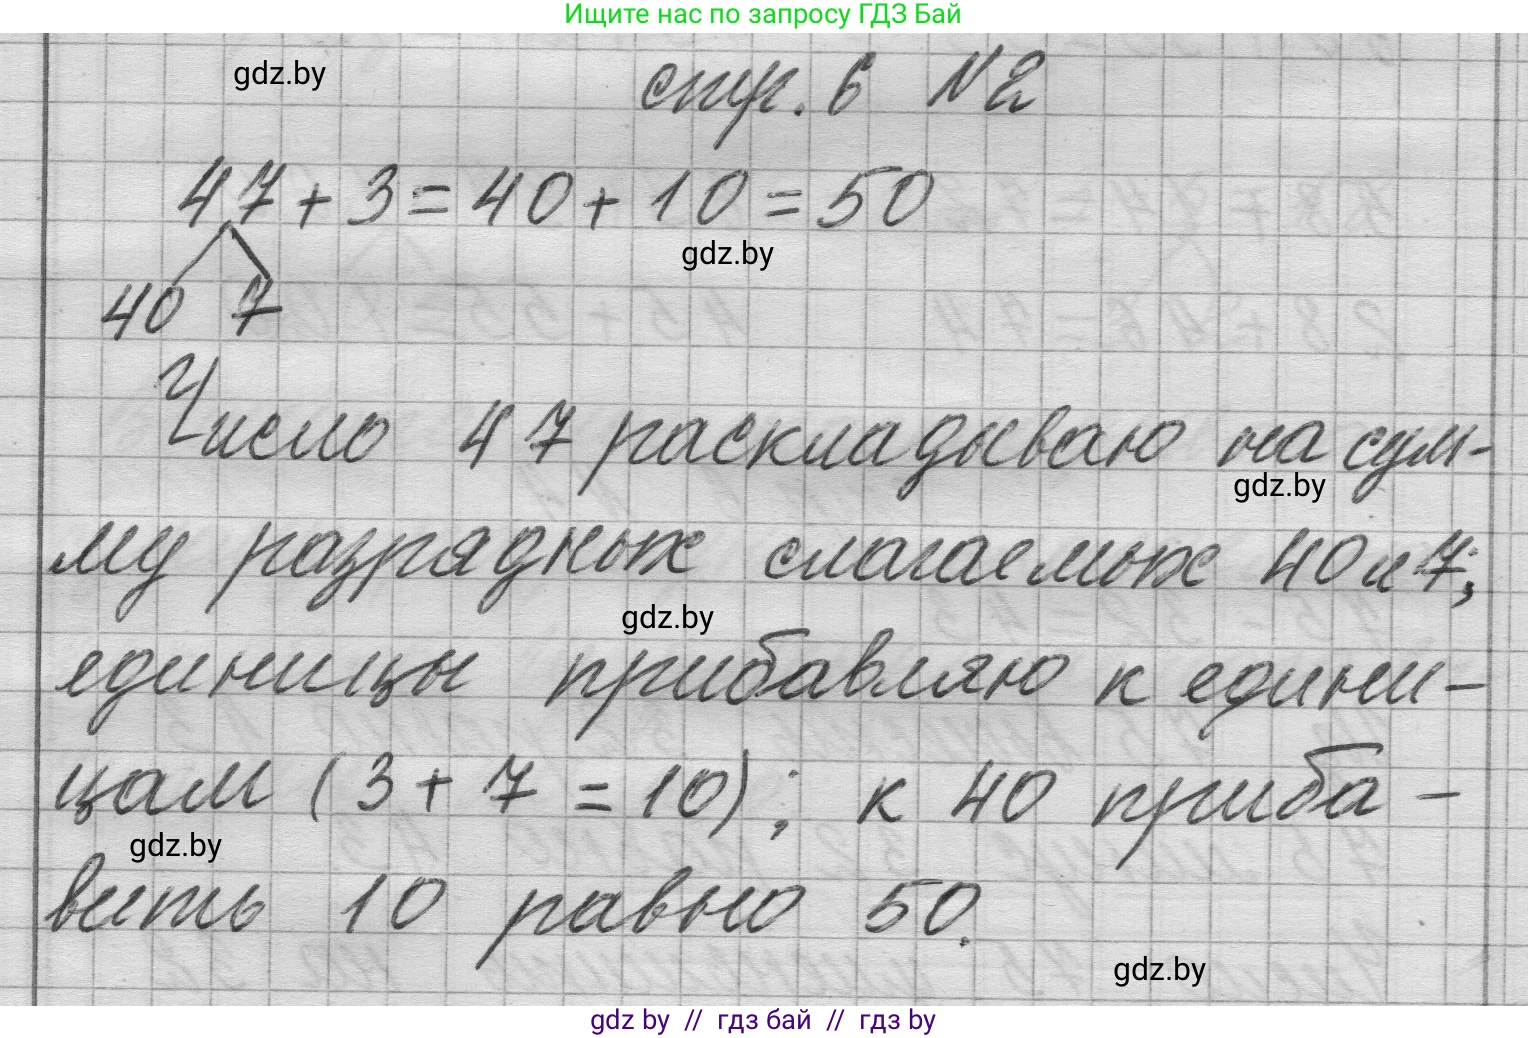 Ищите нас по запросу ГДЗ Бай
gdz.by
стр. 6 №2
47+3=40+10=50
gdz.by
40 7
Число 47 раскладываю на сум-
gdz.by
му разрядных слагаемых 40 и 7;
gdz.by
единицы прибавляю к едини-
цам (3+7=10); к 40 приба-
gdz.by
вить 10 равно 50.
gdz.by
gdz by // гдз бай // гдз by